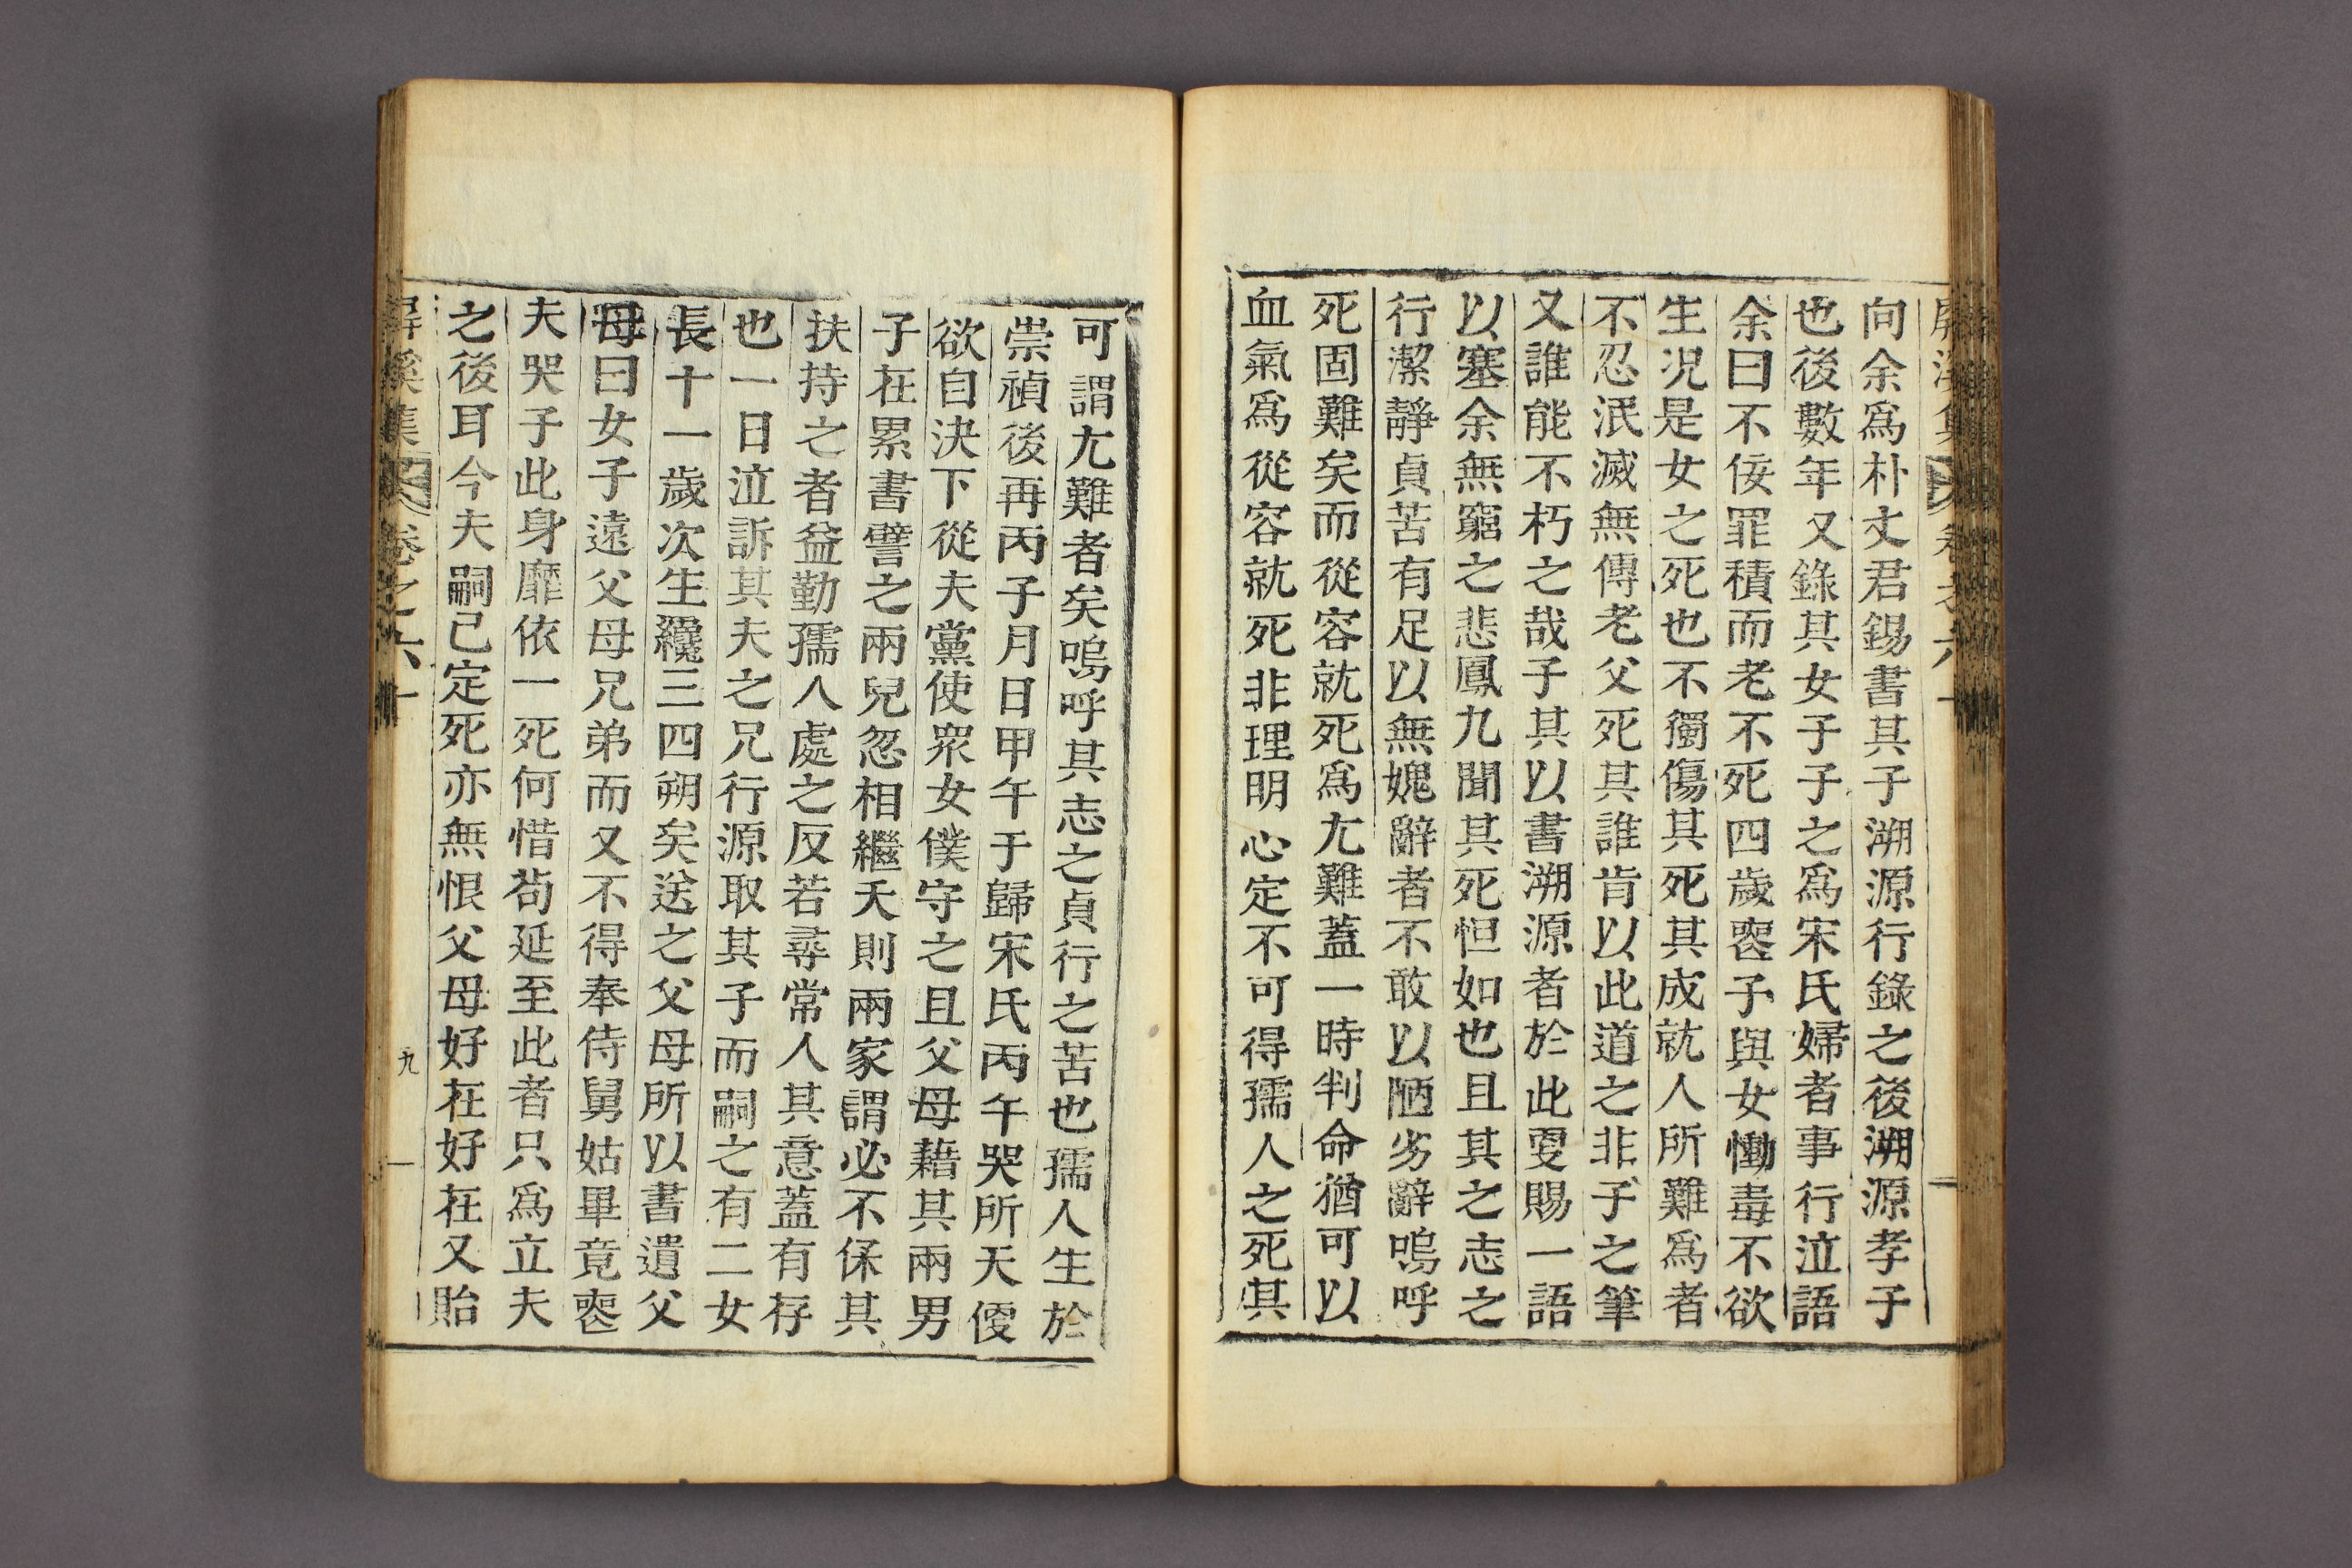 向余爲朴丈君錫書其子溯源行錄之後溯源孝子
也後數年又錄其女子子之爲宋氏婦者事行泣語
余曰不佞罪積而老不死四歲喪子與女慟毒不欲
生况是女之死也不獨傷其死其成就人所難爲者
不忍泯滅無傳老父死其誰肯以此道之非子之筆
又誰能不朽之哉子其以書溯源者於此更賜一語
以塞余無窮之悲鳳九聞其死怛如也且其之志之
行潔靜貞苦有足以無媿辭者不敢以陋劣辭嗚呼
死固難矣而從容就死爲尤難蓋一時判命猶可以
血氣爲從容就死非理明心定不可得孺人之死其
可謂尤難者矣嗚呼其志之貞行之苦也孺人生於
崇禎後再丙子月日甲午于歸宋氏丙午哭所天優
欲自決下從夫黨使衆女僕守之且父母藉其兩男
子在累書譬之兩兒忽相繼夭則兩家謂必不保其
扶持之者益勤孺人處之反若尋常人其意蓋有存
也一日泣訴其夫之兄行源取其子而嗣之有二女
長十一歲次生纔三四朔矣送之父母所以書遺父
母曰女子遠父母兄弟而又不得奉侍舅姑畢竟喪
夫哭子此身靡依一死何惜苟延至此者只爲立夫
之後耳今夫嗣已定死亦無恨父母好在好在又貽
屛溪集 卷之六十 九